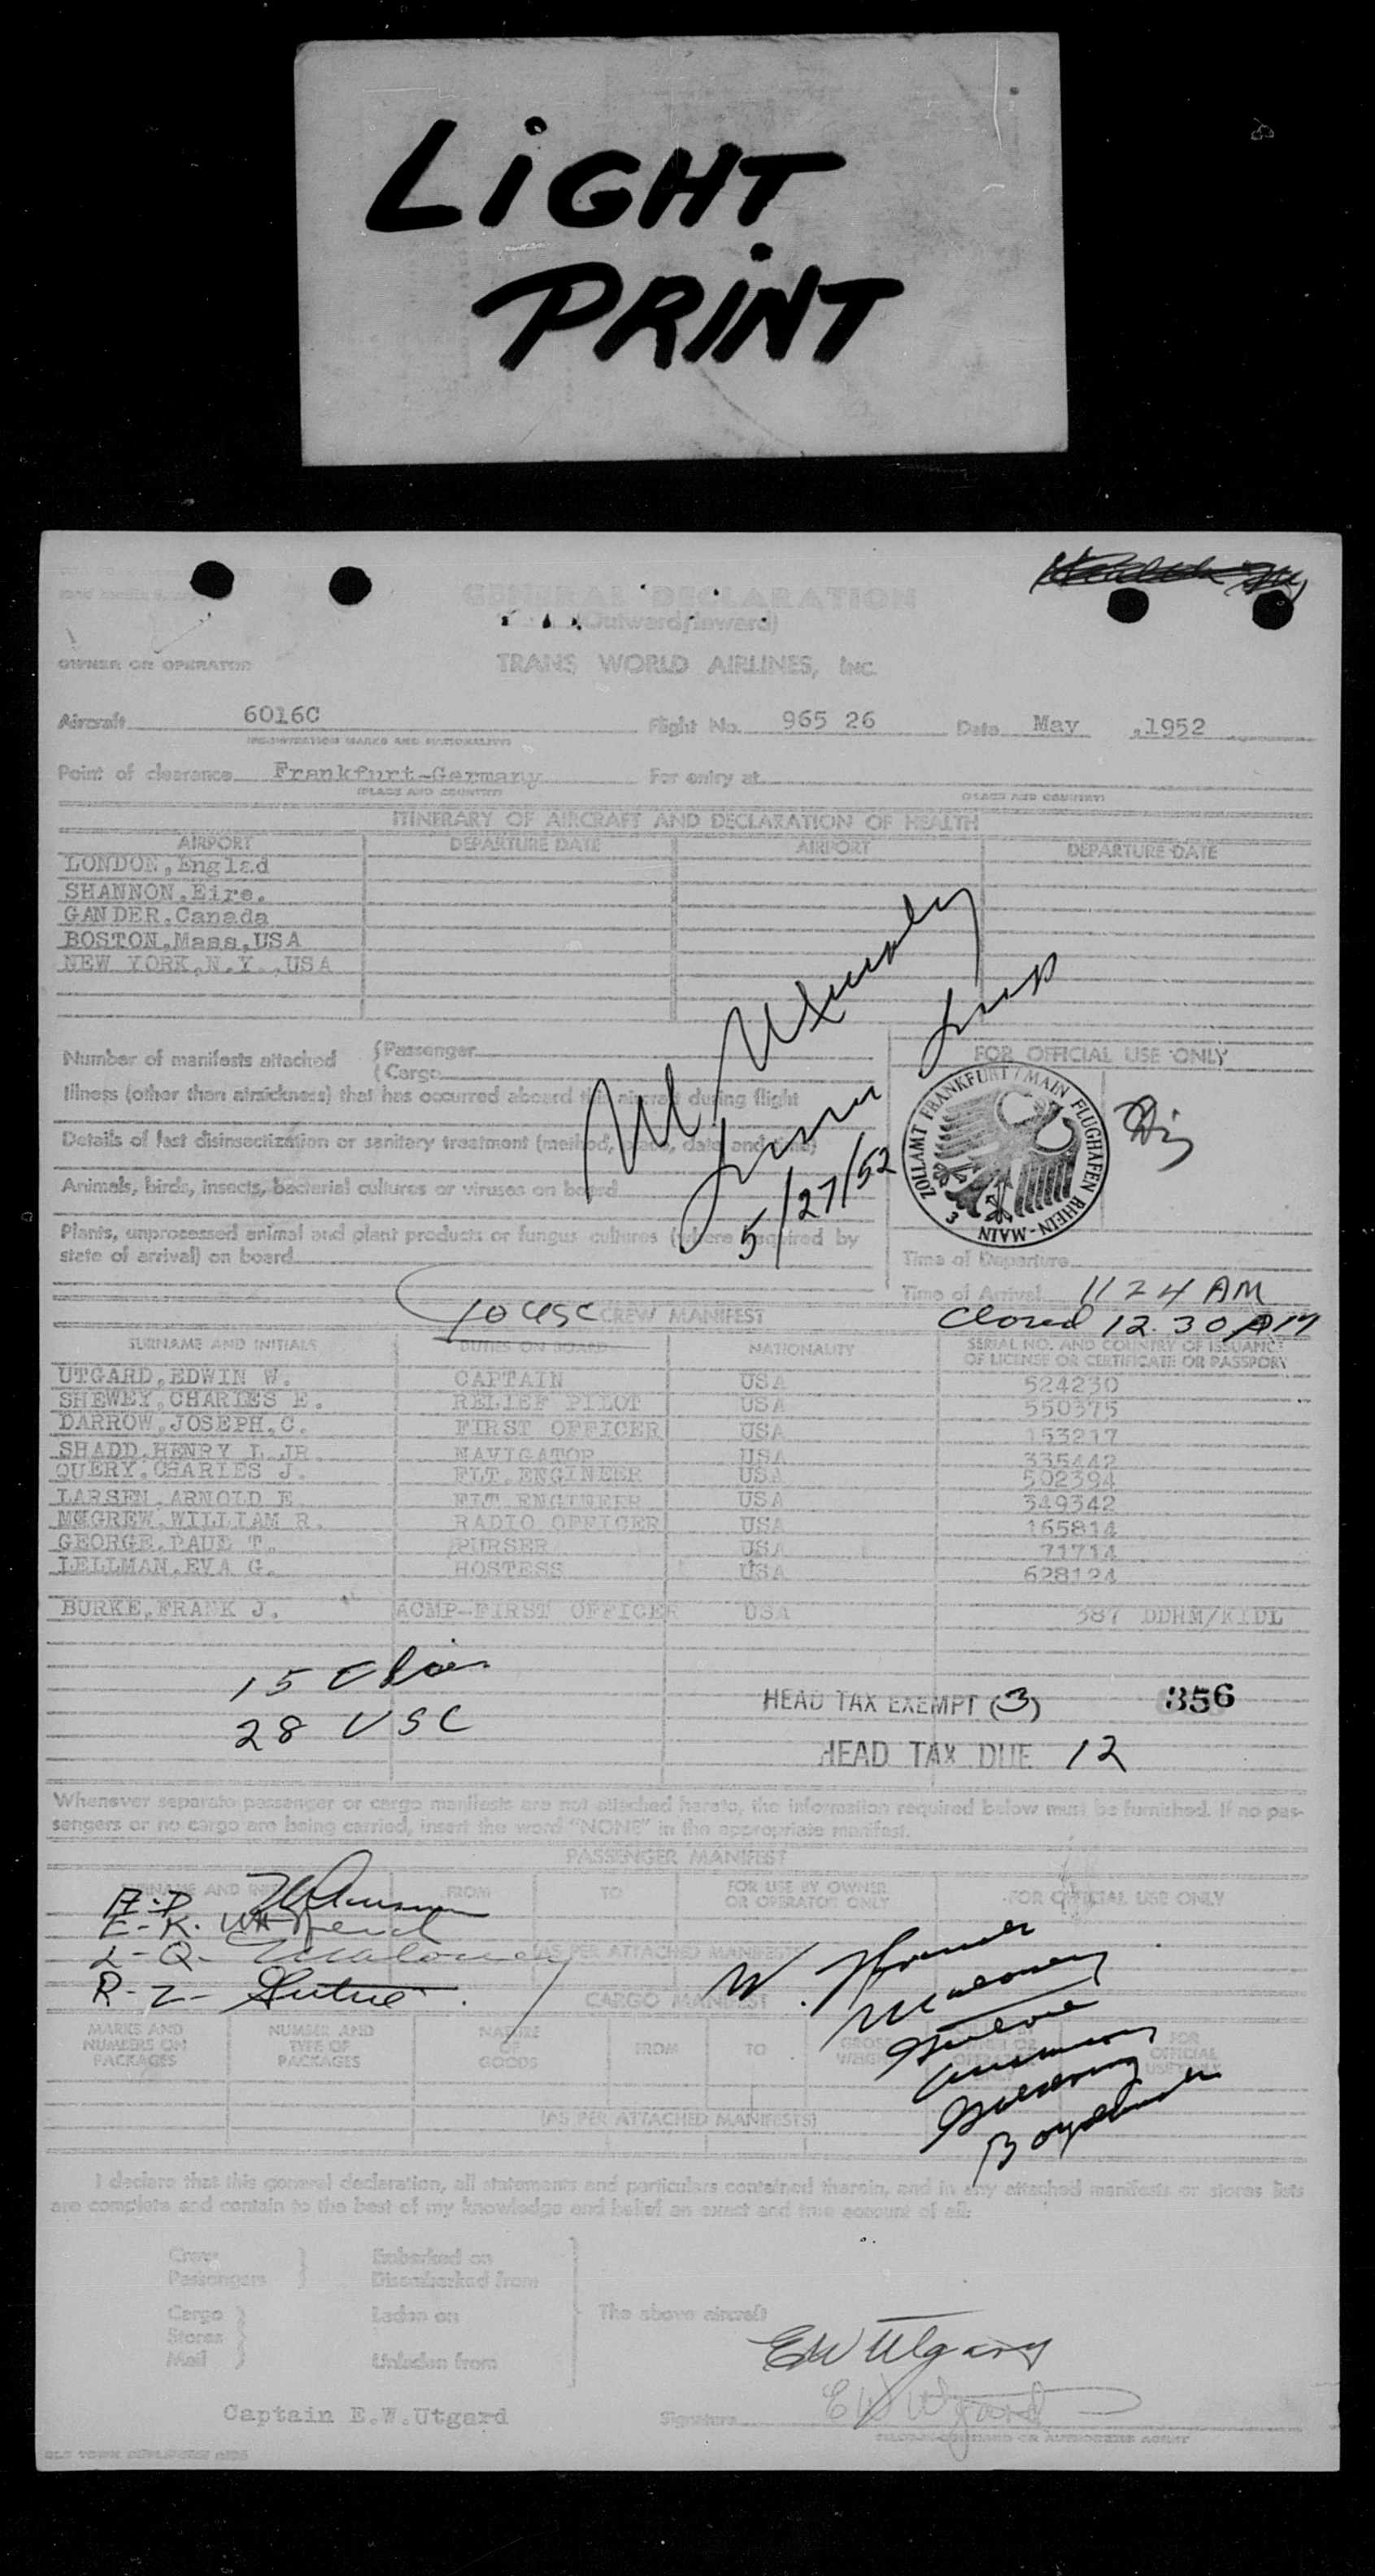 LiGHT
PRiNT
GENERAL DECLARATION
(Outward/Inward)
OWNER OR OPERATOR TRANS WORLD AIRLINES, INC.
Aircraft 6016C Flight No. 965 26 Date May ,1952
REGISTRATION MARKS AND NATIONALITY
Point of clearance Frankfurt-Germany For entry at
(PLACE AND COUNTRY) (PLACE AND COUNTRY)
ITINERARY OF AIRCRAFT AND DECLARATION OF HEALTH
AIRPORT DEPARTURE DATE AIRPORT DEPARTURE DATE
LONDON,Englad
SHANNON,Eire.
GANDER,Canada
BOSTON,Mass,USA
NEW YORK,N.Y.,USA
Number of manifests attached (Passenger
(Cargo
FOR OFFICIAL USE ONLY
Illness (other than airsickness) that has occurred aboard this aircraft during flight
Details of last disinsectization or sanitary treatment (method, place, date and time)
Animals, birds, insects, bacterial cultures or viruses on board
Plants, unprocessed animal and plant products or fungus cultures (where required by
state of arrival) on board
5/27/52
ZOLLAMT FRANKFURT/MAIN FLUGHAFEN RHEIN-MAIN 3
Time of Departure
Time of Arrival 1124 AM
Closed 12.30 PM
10 USC CREW MANIFEST
SURNAME AND INITIALS DUTIES ON BOARD NATIONALITY SERIAL NO. AND COUNTRY OF ISSUANCE
OF LICENSE OR CERTIFICATE OR PASSPORT
UTGARD,EDWIN W. CAPTAIN USA 524230
SHEWEY,CHARLES E. RELIEF PILOT USA 550375
DARROW,JOSEPH,C. FIRST OFFICER USA 153217
SHADD,HENRY L JR NAVIGATOR USA 335442
QUERY,CHARLES J. FLT.ENGINEER USA 502394
LARSEN,ARNOLD E FLT ENGINEER USA 349342
McGREW,WILLIAM R. RADIO OFFICER USA 165814
GEORGE,PAUL T. PURSER USA 71714
LELLMAN,EVA G. HOSTESS USA 628124
BURKE,FRANK J. ACMP-FIRST OFFICER USA 387 DDHM/KIDL
15
28 USC
HEAD TAX EXEMPT (3) 356
HEAD TAX DUE 12
Whenever separate passenger or cargo manifests are not attached hereto, the information required below must be furnished. If no pas-
sengers or no cargo are being carried, insert the word "NONE" in the appropriate manifest.
PASSENGER MANIFEST
SURNAME AND INITIALS FROM TO FOR USE BY OWNER
OR OPERATOR ONLY FOR OFFICIAL USE ONLY
A-D
E-K
L-Q
R-Z
(AS PER ATTACHED MANIFESTS)
CARGO MANIFEST
MARKS AND
NUMBERS ON
PACKAGES
NUMBER AND
TYPE OF
PACKAGES
NATURE
OF
GOODS
FROM
TO
GROSS
WEIGHT
FOR
OFFICIAL
USE ONLY
(AS PER ATTACHED MANIFESTS)
I declare that this general declaration, all statements and particulars contained therein, and in any attached manifests or stores lists
are complete and contain to the best of my knowledge and belief an exact and true account of all:
Crew
Passengers
Embarked on
Disembarked from
Cargo
Stores
Mail
Laden on
Unladen from
The above aircraft
EW Utgard
Captain E.W.Utgard Signature EW Utgard
PILOT-IN-COMMAND OR AUTHORIZED AGENT